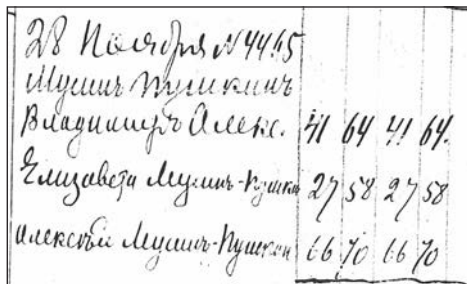 28 Ноября № 4415
Мусинъ Пушкинъ
Владимиръ Алекс. 41 64 41 64.
Елизавета Мусинъ-Пушкин 27 58 27 58
Алексѣй Мусинъ-Пушкин 66 70 66 70